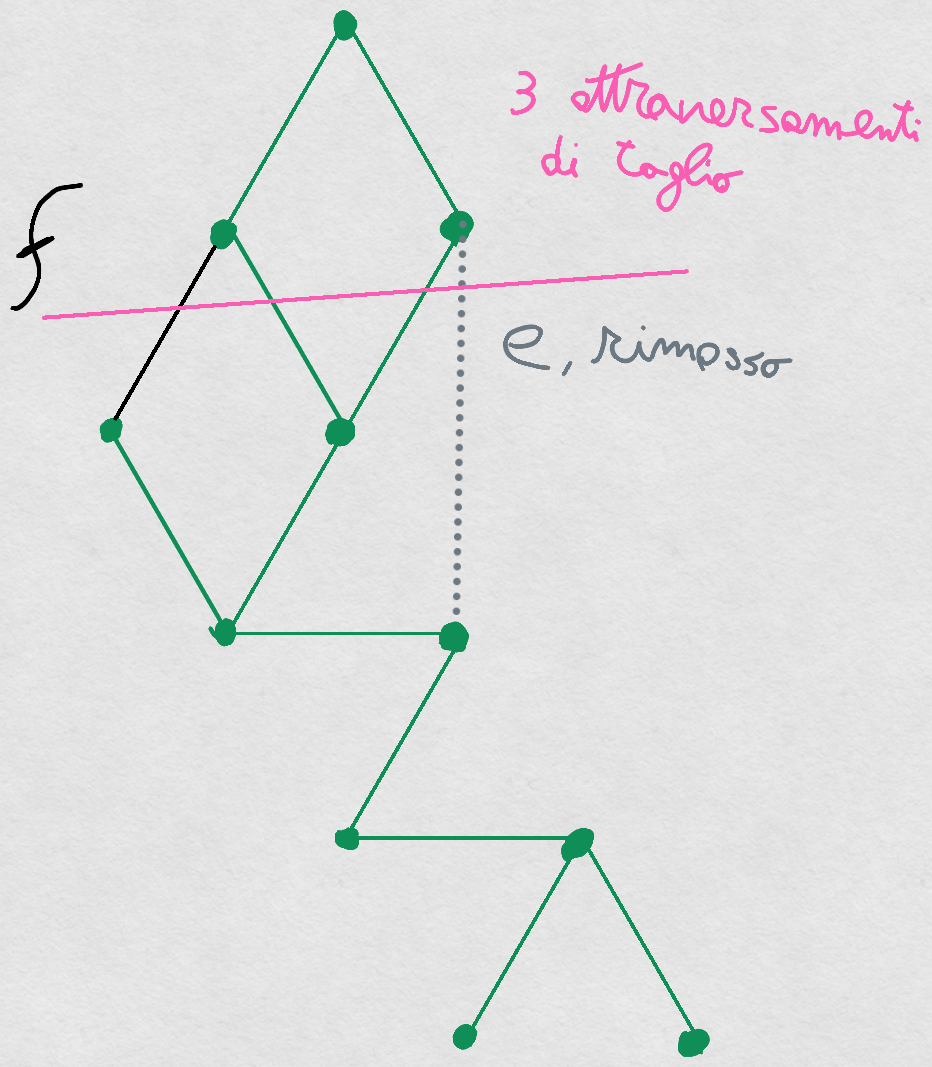 3 attraversamenti
di taglio
f
e, rimosso